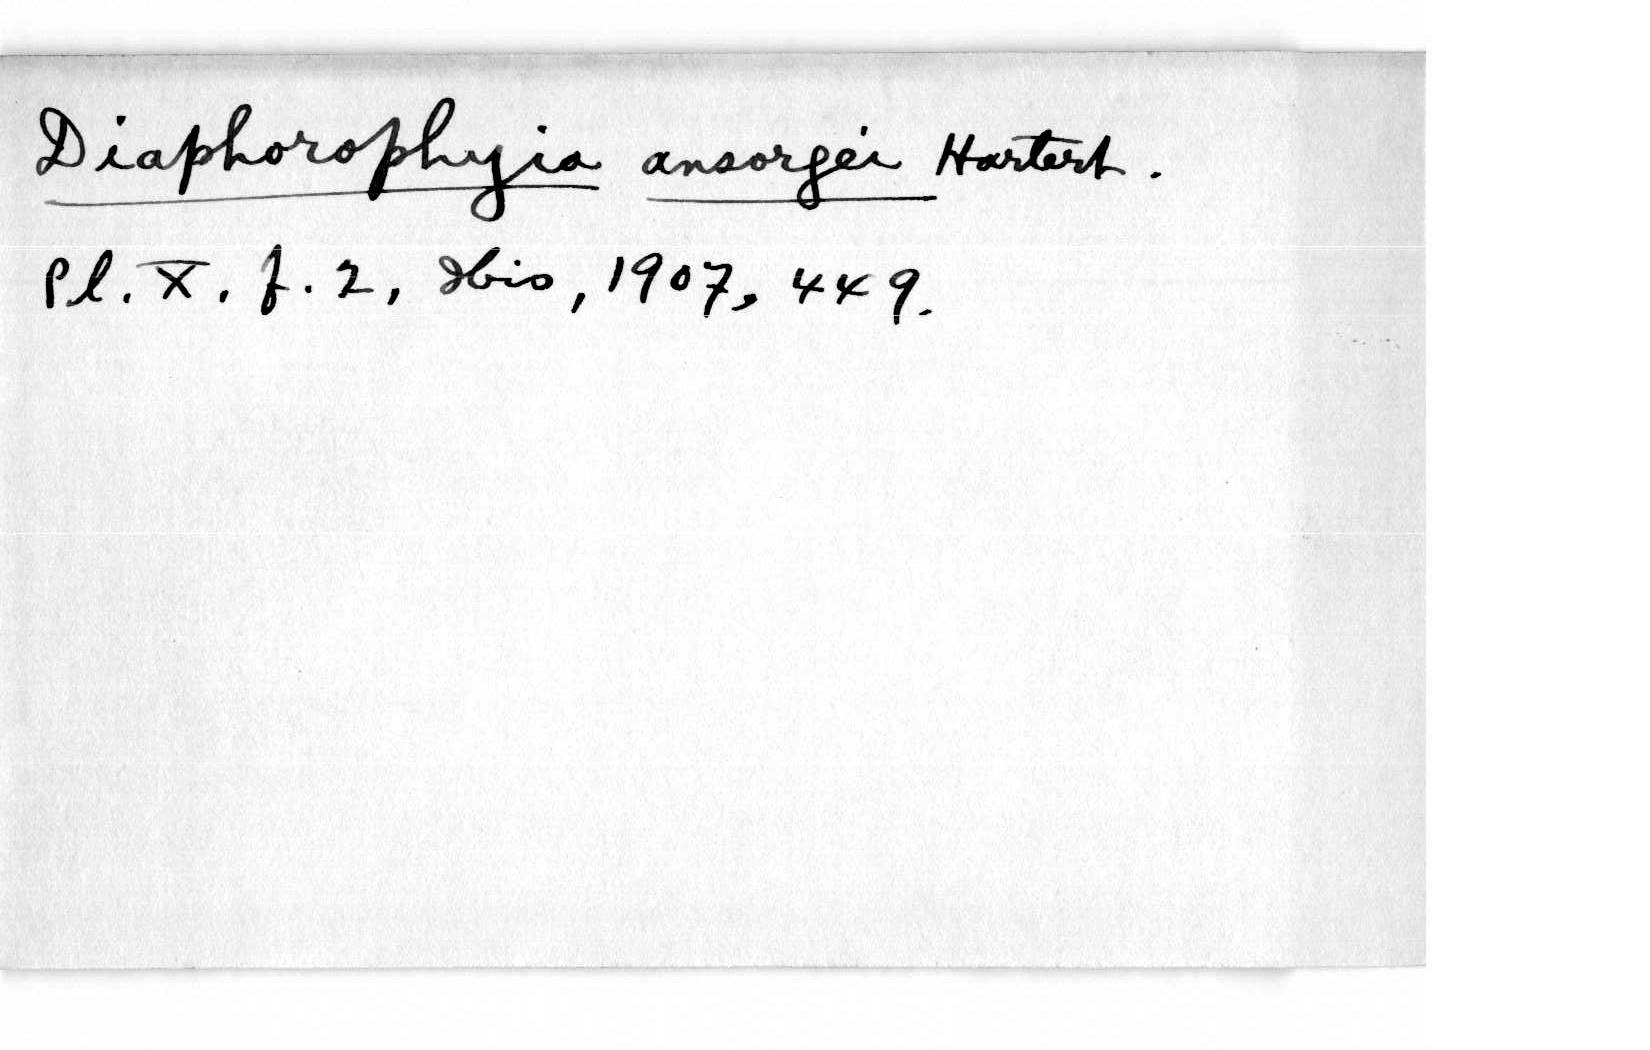 Diaphorophyia ansorgei Hartert.
Pl. X. f. 2, Ibis, 1907, 449.